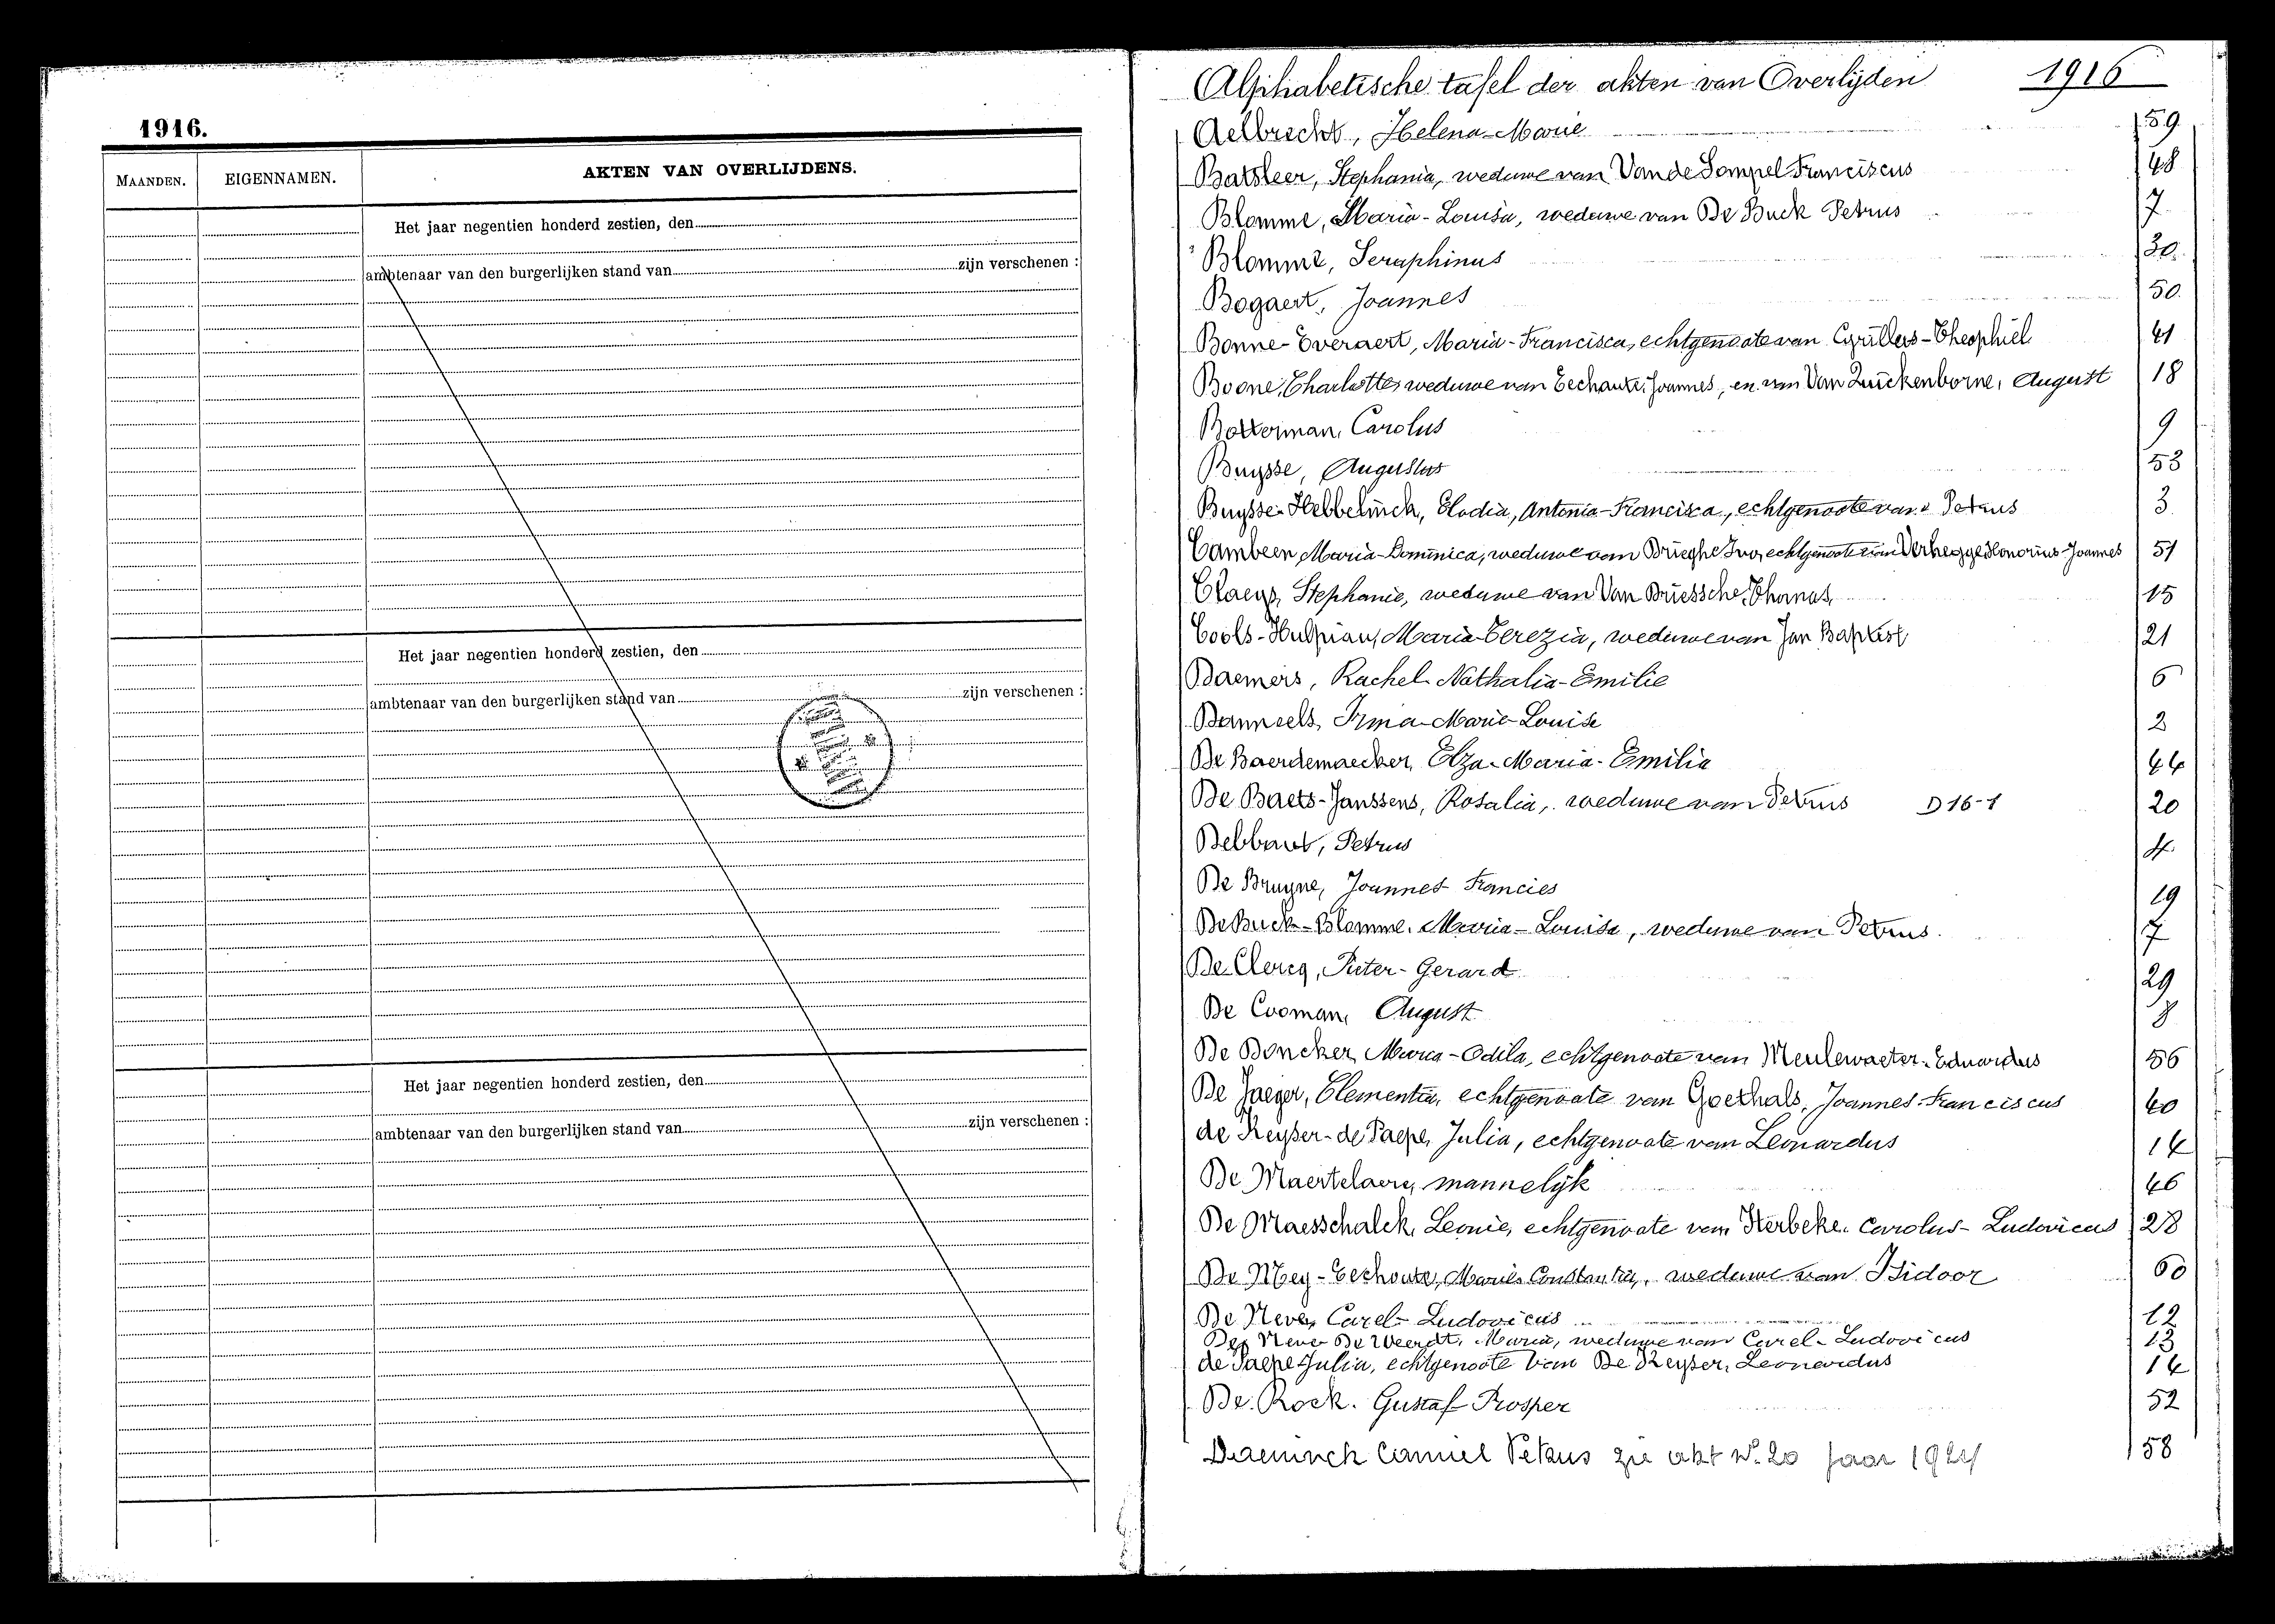 1916.
MAANDEN. EIGENNAMEN. AKTEN VAN OVERLIJDENS.
Het jaar negentien honderd zestien, den
ambtenaar van den burgerlijken stand van zijn verschenen :
Het jaar negentien honderd zestien, den
ambtenaar van den burgerlijken stand van zijn verschenen :
Het jaar negentien honderd zestien, den
ambtenaar van den burgerlijken stand van zijn verschenen :
Alphabetische tafel der akten van Overlijden 1916
Aelbrecht, Helena-Marie 59
Batsleer, Stephania, weduwe van Van de Sompel Franciscus 48
Blomme, Maria-Louisa, weduwe van De Buck Petrus 7
Blomme, Seraphinus 30
Bogaert, Joannes 50
Bonne-Everaert, Maria-Francisca, echtgenoote van Cyrillus-Theophiel 41
Boone, Charlotte, weduwe van Eechaute, Joannes, en van Van Quickenborne, August 18
Botterman, Carolus 9
Buysse, Augustus 53
Buysse-Hebbelinck, Elodia, Antonia-Francisca, echtgenoote van Petrus 3
Cambeen, Maria-Dominica, weduwe van Brieghe Ivo, echtgenoote van Verhegge Honorius-Joannes 51
Claeys, Stephanie, weduwe van Van Driessche, Thomas 15
Cools-Hulpiau, Maria-Terezia, weduwe van Jan Baptist 21
Daemers, Rachel-Nathalia-Emilie 6
Danneels, Irma-Marie-Louise 2
De Baerdemaecker, Elza-Maria-Emilia 44
De Baets-Janssens, Rosalia, weduwe van Petrus D 16-1 20
Debbaut, Petrus 4
De Bruyne, Joannes Francies 19
De Buck-Blomme, Maria-Louisa, weduwe van Petrus 7
De Clercq, Pieter-Gerard 29
De Cooman, August 8
De Doncker, Maria-Odila, echtgenoote van Meulewaeter, Eduardus 56
De Jaeger, Clementia, echtgenoote van Goethals, Joannes-Franciscus 40
de Keyser-de Paepe, Julia, echtgenoote van Leonardus 14
De Maertelaere, mannelijk 46
De Maesschalck, Leonie, echtgenoote van Sterbeke, Carolus-Ludovicus 28
De Mey-Eechoute, Marie Constantia, weduwe van Isidoor 60
De Neve, Carel-Ludovicus 12
De Neve-De Weerdt, Maria, weduwe van Carel-Ludovicus 13
de Paepe Julia, echtgenoote van De Keyser, Leonardus 14
De Rock, Gustaf Prosper 52
Daeninck Camiel Petrus zie akt Nº 20 jaar 1924 58